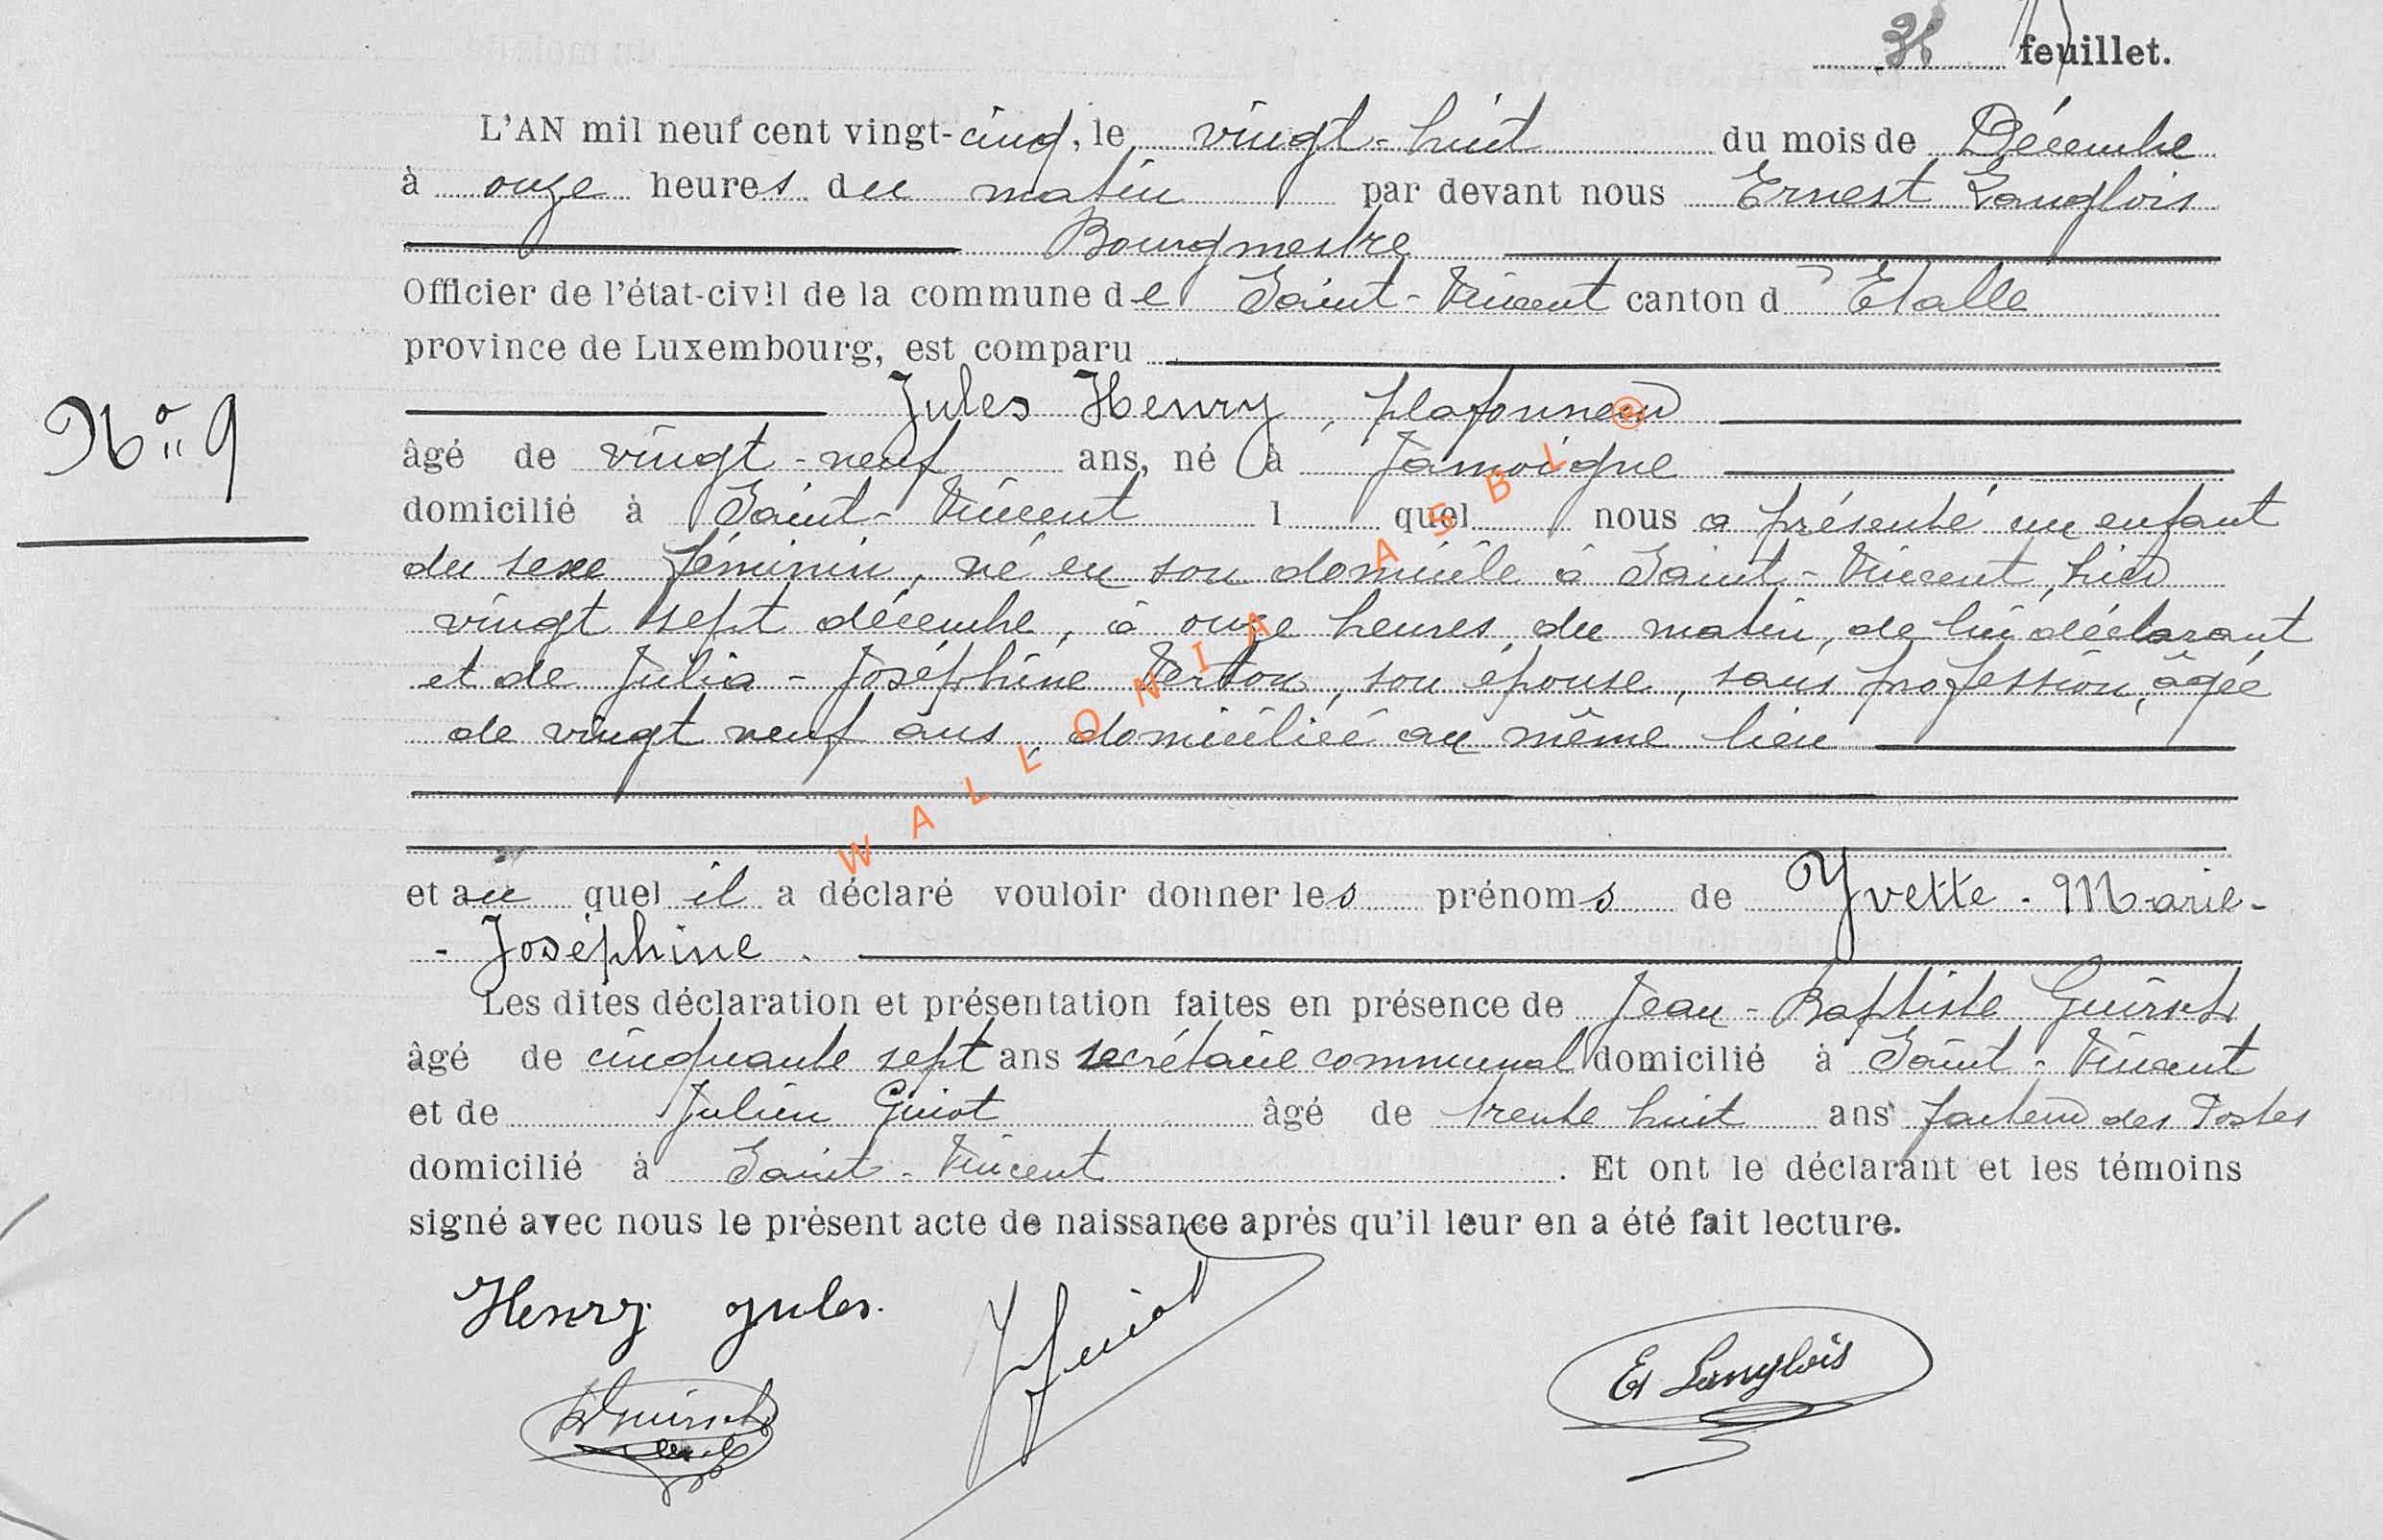 3e feuillet.
L'AN mil neuf cent vingt-cinq, le vingt-huit du mois de Décembre
à onze heures du matin par devant nous Ernest Langlois
Bourgmestre
Officier de l'état-civil de la commune de Saint-Vincent canton d'Etalle
province de Luxembourg, est comparu
Jules Henry, plafonneur
N° 9
âgé de vingt-neuf ans, né à Jamoigne
domicilié à Saint-Vincent l quel nous a présenté un enfant
du sexe féminin, né en son domicile à Saint-Vincent, hier
vingt sept décembre, à onze heures du matin, de lui déclarant
et de Julia-Joséphine Verton, son épouse, sans profession, âgée
de vingt neuf ans, domiciliée au même lieu
WALLONIA ASBL ®
et au quel il a déclaré vouloir donner les prénoms de Yvette-Marie-
-Joséphine.
Les dites déclaration et présentation faites en présence de Jean-Baptiste Guirsch
âgé de cinquante sept ans secrétaire communal domicilié à Saint-Vincent
et de Julien Guiot âgé de trente huit ans facteur des Postes
domicilié à Saint-Vincent. Et ont le déclarant et les témoins
signé avec nous le présent acte de naissance après qu'il leur en a été fait lecture.
Henry Jules. J Guiot
Guirsch Et Langlois